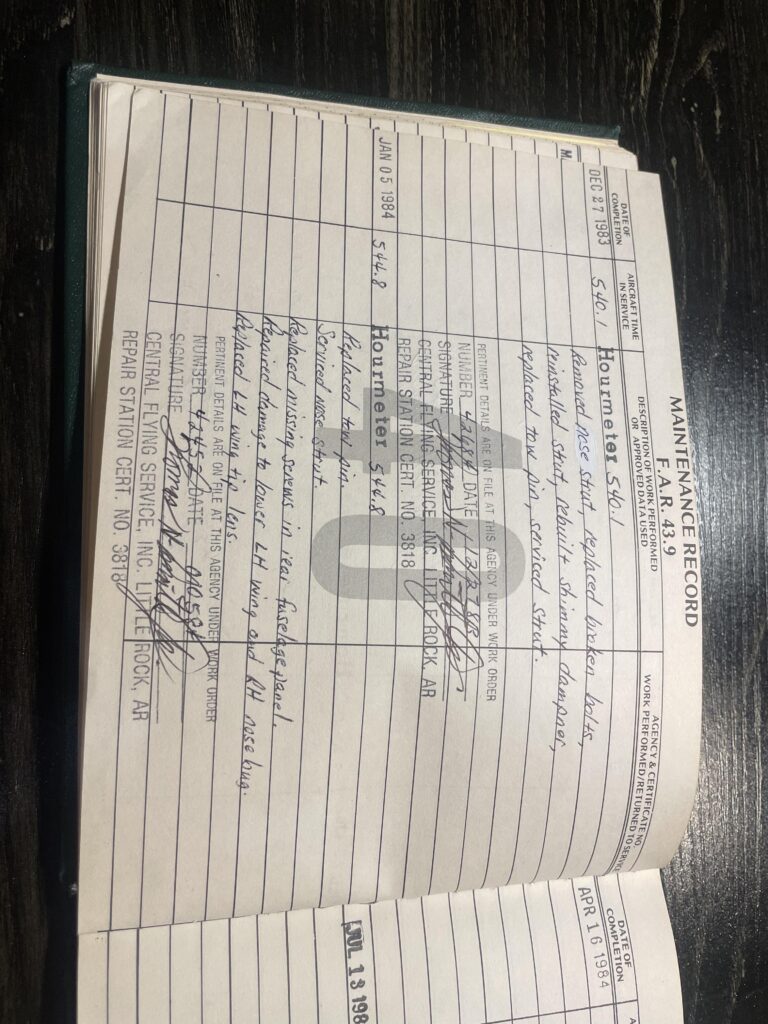 MAINTENANCE RECORD
F.A.R. 43.9
DATE OF COMPLETION
AIRCRAFT TIME IN SERVICE
DESCRIPTION OF WORK PERFORMED OR APPROVED DATA USED
AGENCY & CERTIFICATE NO. WORK PERFORMED/RETURNED TO SERVICE
DEC 27 1983 540.1 Hourmeter 540.1
Removed nose strut, replaced broken bolts,
reinstalled strut, rebuilt shimmy dampner,
replaced tow pin, serviced strut.
PERTINENT DETAILS ARE ON FILE AT THIS AGENCY UNDER WORK ORDER
NUMBER 42484 DATE
SIGNATURE
CENTRAL FLYING SERVICE, INC. LITTLE ROCK, AR
REPAIR STATION CERT. NO. 3818
JAN 05 1984 544.8 Hourmeter 544.8
Replaced tow pin.
Serviced nose strut.
Replaced missing screws in rear fuselage panel.
Repaired damage to lower LH wing and RH nose bug.
Replaced LH wing tip lens.
PERTINENT DETAILS ARE ON FILE AT THIS AGENCY UNDER WORK ORDER
NUMBER DATE
SIGNATURE
CENTRAL FLYING SERVICE, INC. LITTLE ROCK, AR
REPAIR STATION CERT. NO. 3818
10
M
DATE OF COMPLETION
A
APR 16 1984
JUL 13 198